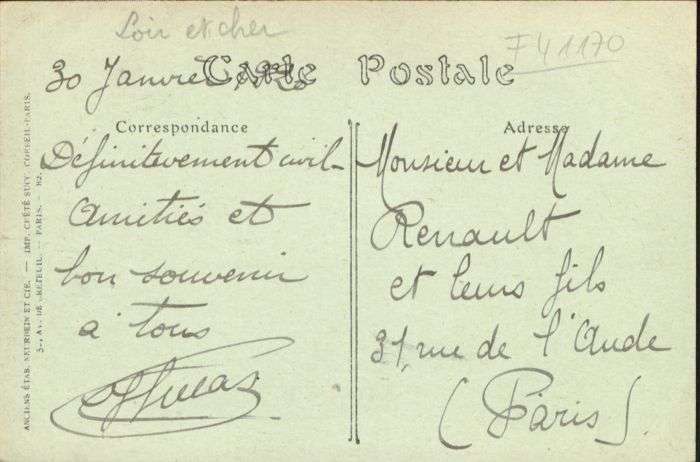 Loir et cher
F41170
30 Janvre
Carte Postale
Correspondance
Adresse
Définitevement civil
Amitiés et
bon souvenir
à tous
Monsieur et Madame
Renault
et leurs fils
31, rue de l'Aude
(Paris).
ANCIENS ÉTAB. NEURDEIN ET CIE. — IMP. CRÉTÉ SUCC. CORBEIL-PARIS.
52, AV. DE BRETEUIL — PARIS.